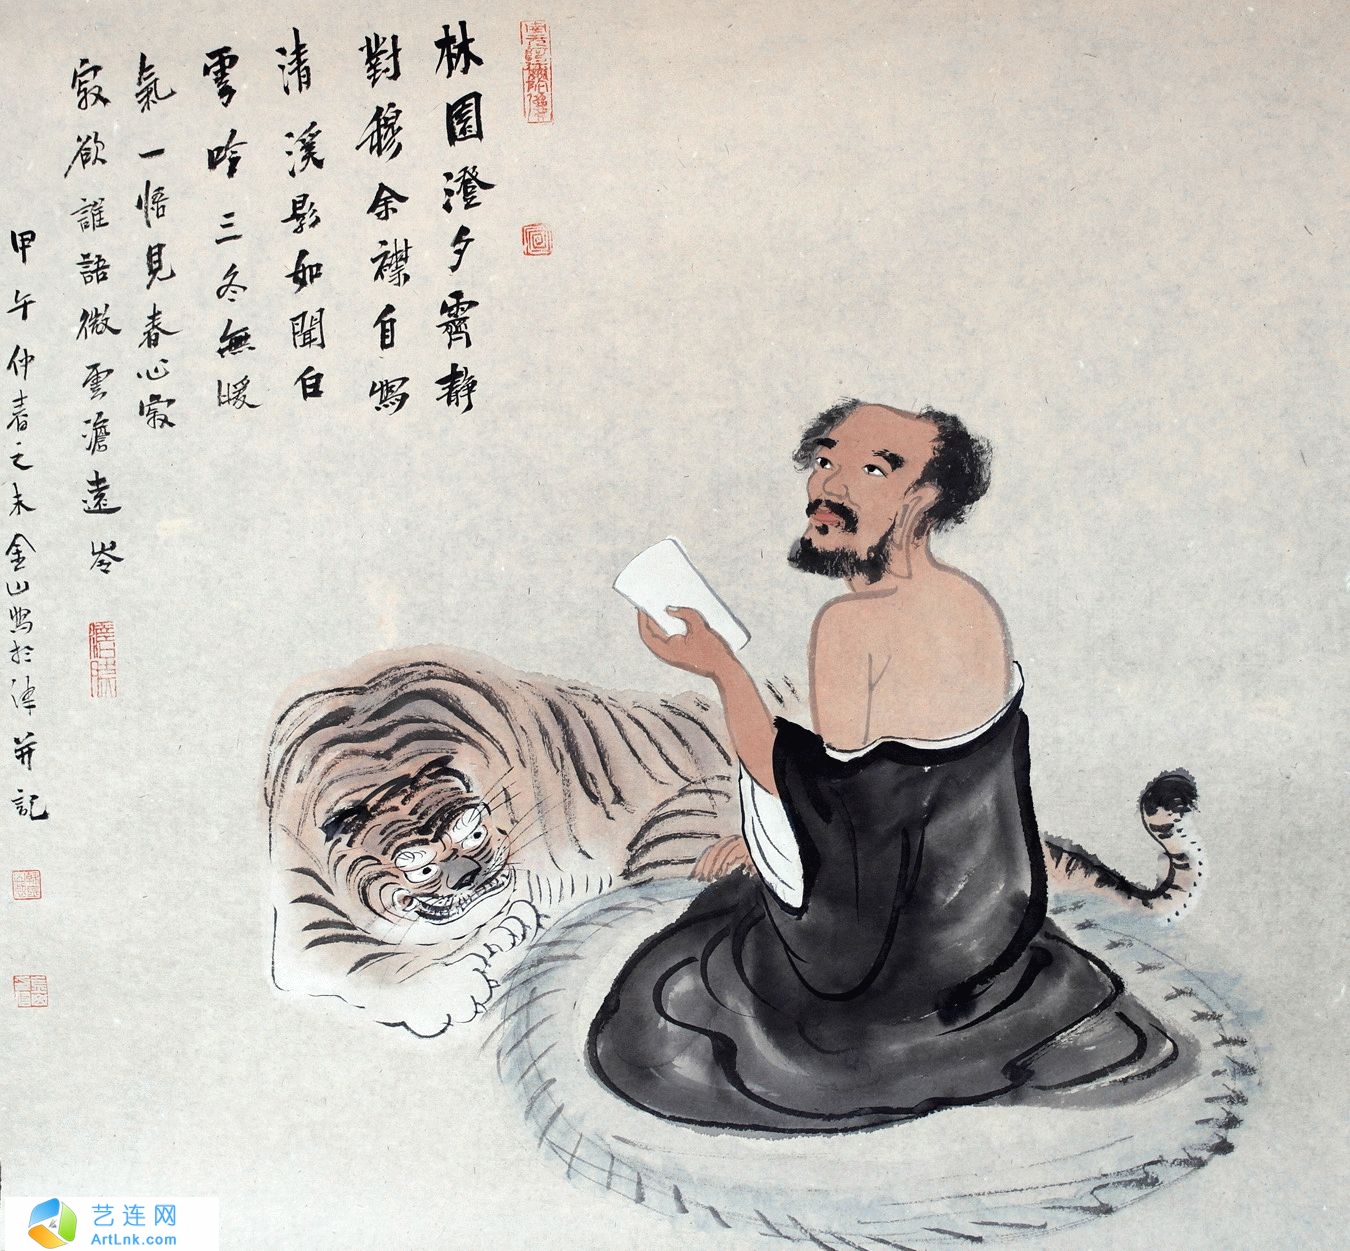 林園澄夕霽靜
對穆余襟自寫
清溪影如聞白
雪吟三冬無暖
氣一悟見春心寂
寂欲誰語微雲澹遠岑
甲午仲春之末金山寫於津并記
艺连网
ArtLnk.com